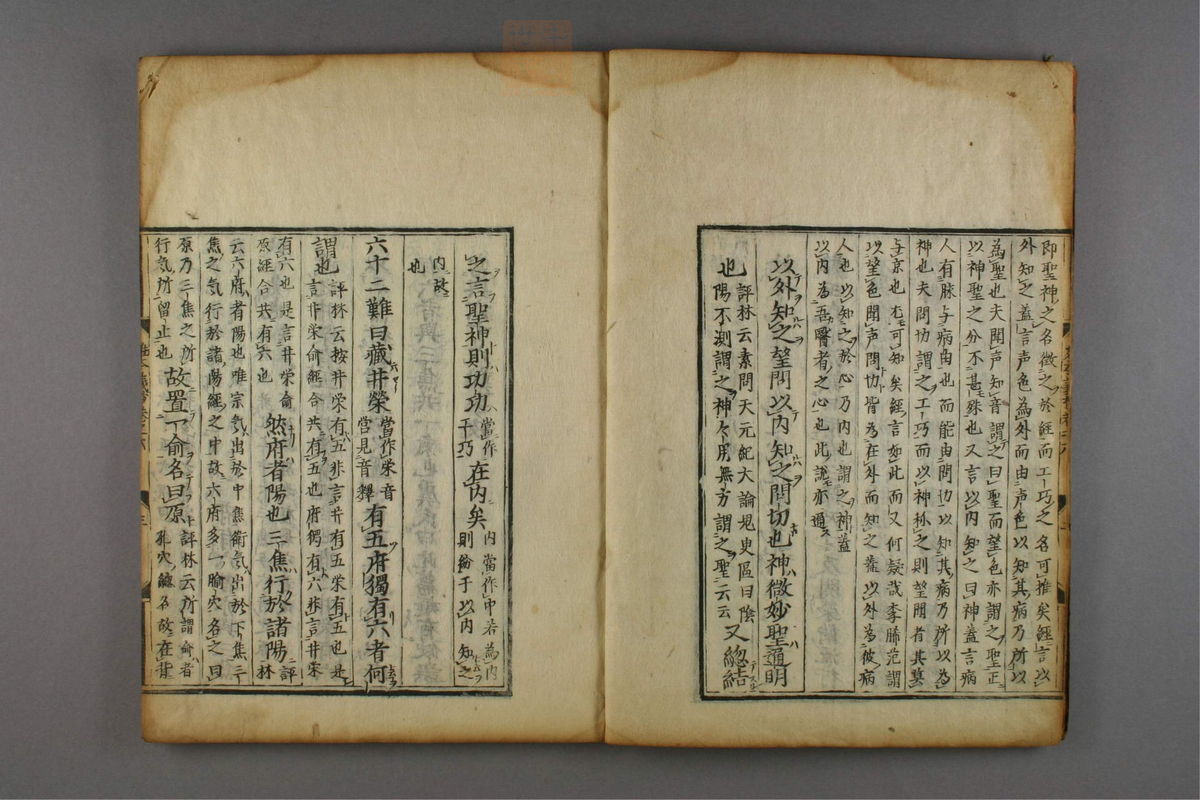 即聖神之名徵之於経而工巧之名可推矣経言以
外知之盖言声色為外而由声色以知其病乃所以
為聖也夫聞声知音謂之曰聖而望色亦謂之聖正
以神聖之分不甚殊也又言以内知之曰神盖言病
人有脉与病由也而能由問切以知其病乃所以為
神也夫問切謂之工巧而以神称之則望聞者其
与京也尤可知矣経言如此而又何疑哉李
以望色聞声問切皆為在外而知之以外為彼病
人也以知之於心乃内也謂之神盖
以内為吾医者之心也此説亦通
以外知之望聞以内知之問切也神微妙聖通明
也評林云素問天元紀大論鬼臾區曰陰
陽不測謂之神々用無方謂之聖云云又総結
之言聖神則功功當作工巧在内矣内當作中若為内
則紛于以内知之
内故
也
六十二難曰藏井榮當作滎音
営見音釋有五府獨有六者何
謂也評林云按井栄有五非言井有五栄有五也是
言井栄俞経合共有五也府獨有六非言井栄
有六也是言井栄俞
原経合共有六也然府者陽也三焦行於諸陽評林
云六府者陽也唯宗気出於中焦衛気出於下焦三
焦之気行於諸陽経之中故六府多一腧穴名之曰
原乃三焦之所
行気所留止也故置一俞名曰原評林云所謂俞者
孔穴緫名故在背